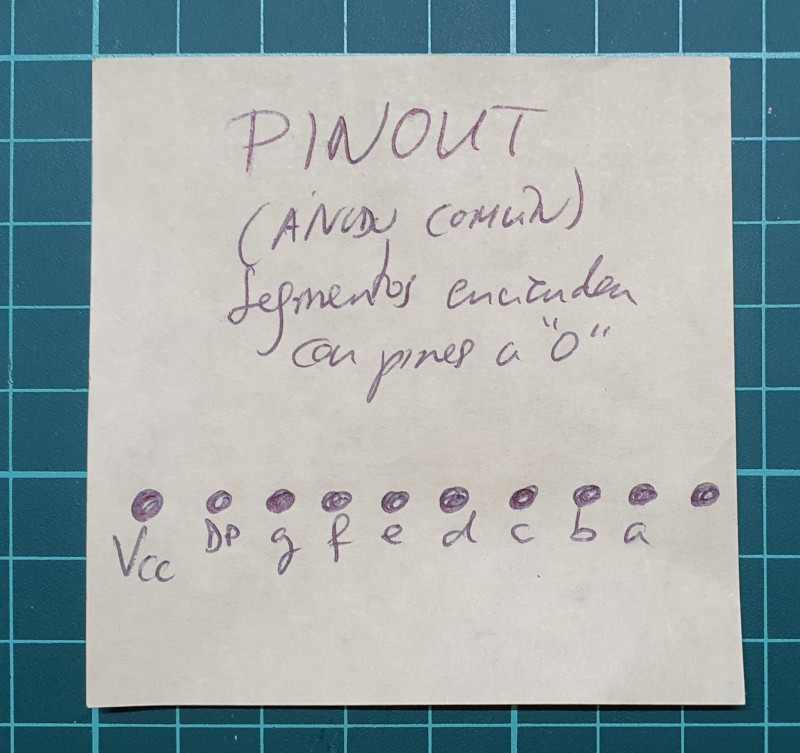 PINOUT
(ÁNODO COMÚN)
Segmentos encienden
con pines a "0"
Vcc DP g f e d c b a